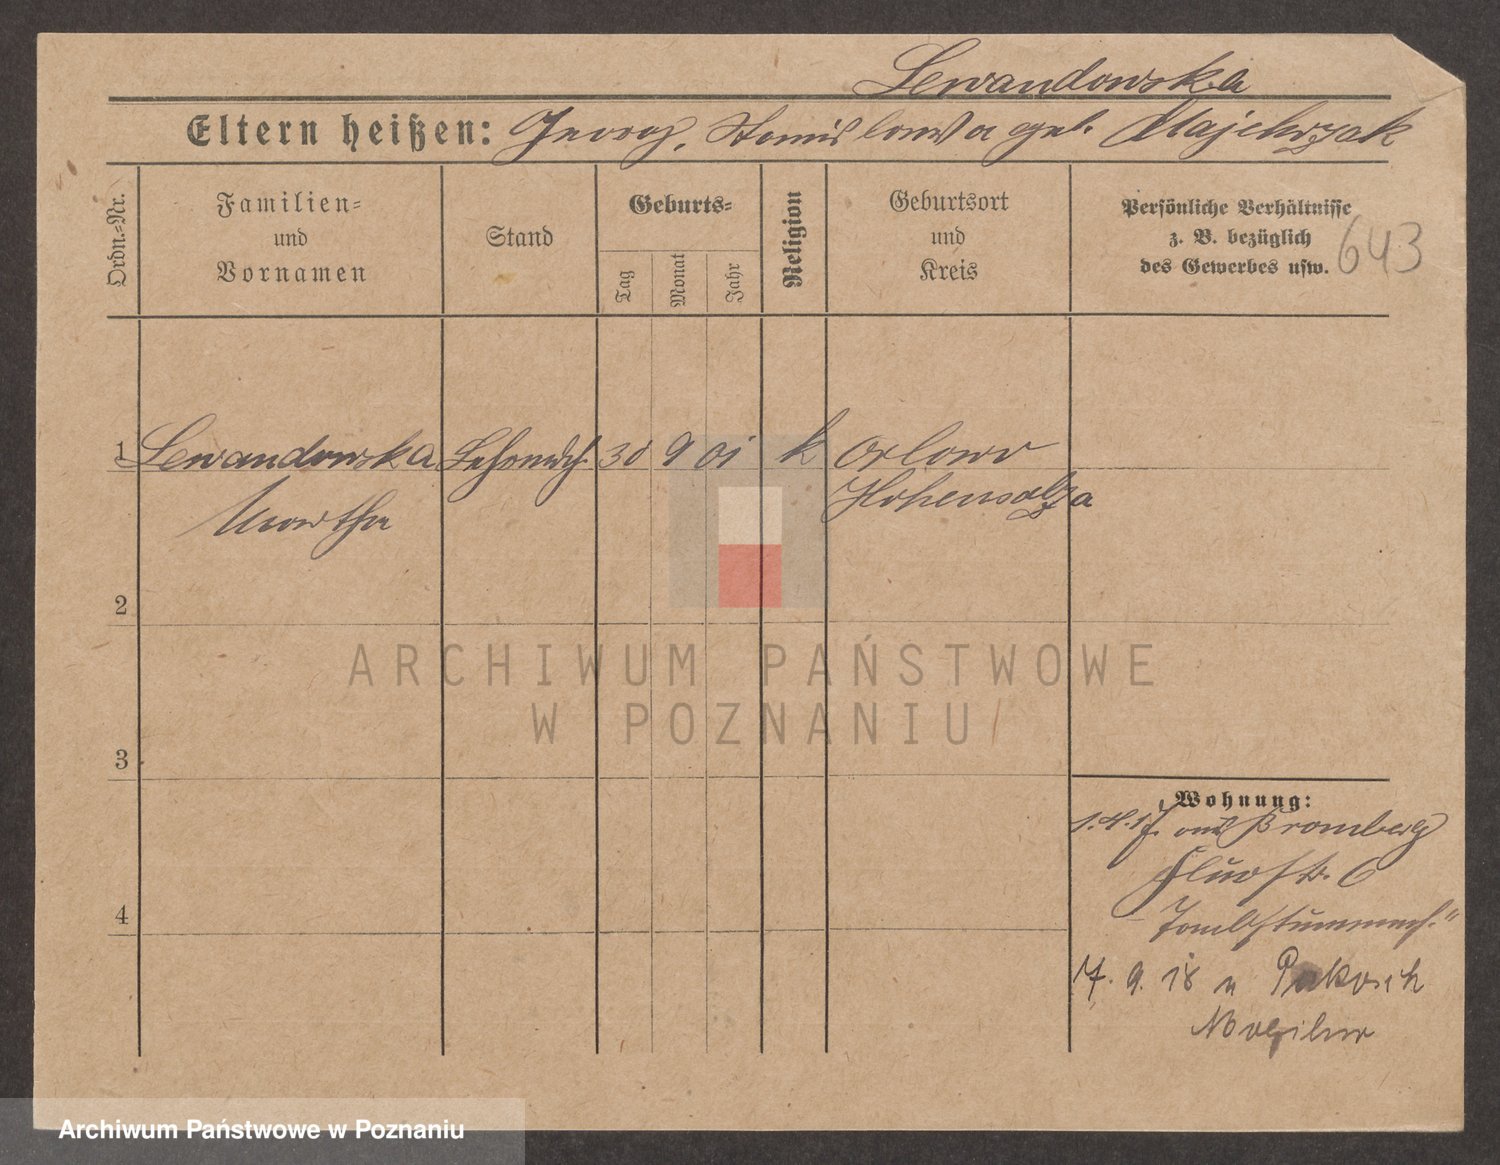 Lewandowska
Eltern heißen: Georg, Stanislawa geb. Majchrzak
Ordn.-Nr.
Familien-
und
Vornamen
Stand
Geburts-
Tag
Monat
Jahr
Religion
Geburtsort
und
Kreis
Persönliche Verhältnisse
z. B. bezüglich
des Gewerbes usw.
643
1 Lewandowska 30 9 01 k Orlowo
Martha Hohensalza
2
3
4
Wohnung:
1.4.17. aus Bromberg
6
17. 9. 18 n Pakosch
Mogilno
ARCHIWUM PAŃSTWOWE
W POZNANIU
Archiwum Państwowe w Poznaniu